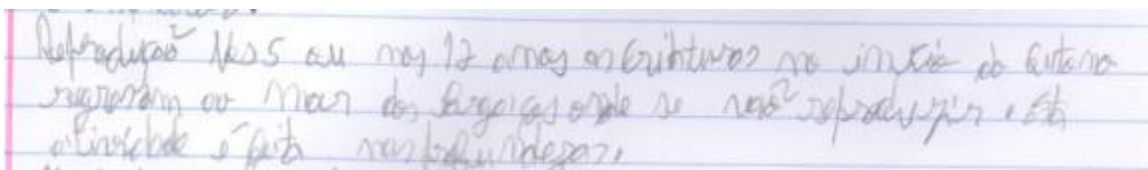 Reprodução Nos 5 ou nos 12 anos as criaturas no início do Outono
regressam ao Mar dos Sargaços onde se vão reproduzir. Esta
atividade é feita nas profundezas.